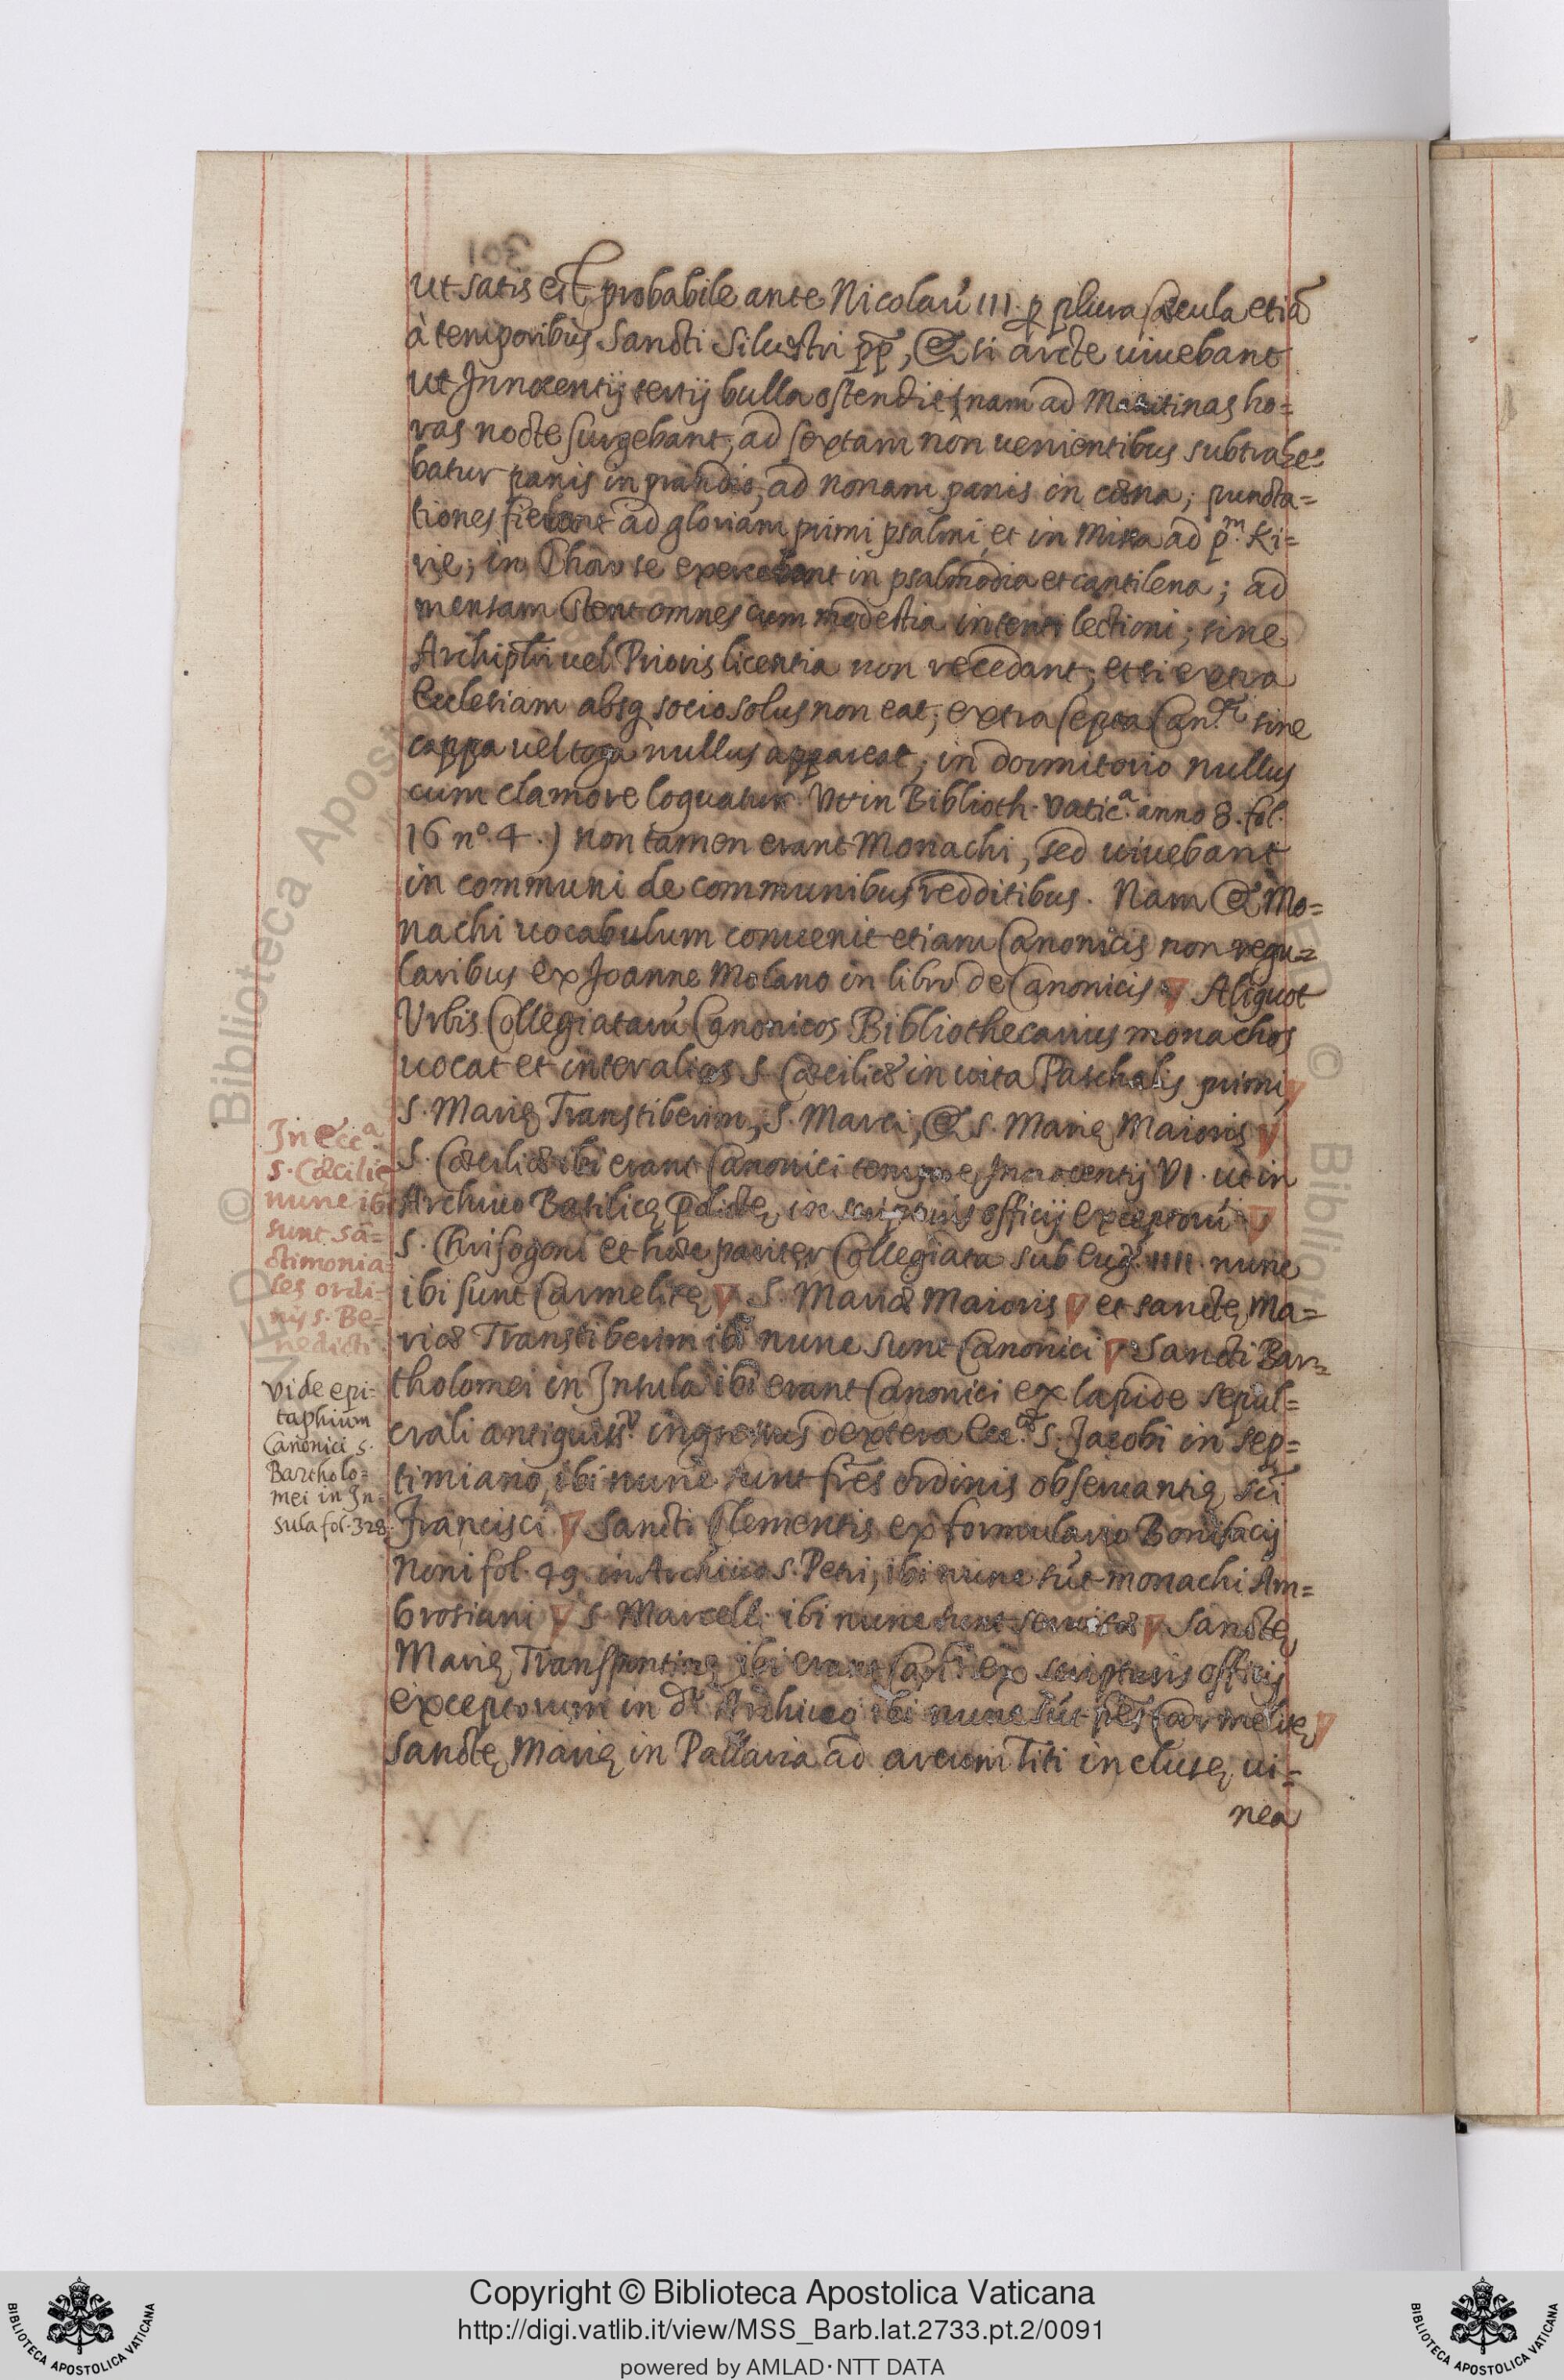 ut satis est probabile ante Nicolaũ III. ꝑ plura sæcula etiã
à temporibus Sancti Siluestri pp̃, & si arcte uiuebant
ut Innocentij tertij bulla ostendit (nam ad Matutinas ho=
ras nocte surgebant, ad sextam non uenientibus subtrahe=
batur panis in prandio, ad nonam panis in cæna; puncta=
tiones fiebant ad gloriam primi psalmi, et in Missa ad p.m Ki=
rie; in Choro se exercebant in psalmodia et cantilena; ad
mensam stent omnes cum modestia intenti lectioni; sine
Archipbri uel Prioris licentia non recedant; et si extra
Ecclesiam absq socio solus non eat; extra septa Can.ci sine
cappa uel toga nullus appareat; in dormitorio nullus
cum clamore loquatur. Vt in Biblioth. Vatic.a anno 8. fol.
16 n.o 4.) non tamen erant Monachi, sed uiuebant
in communi de communibus redditibus. Nam & Mo=
nachi uocabulum conuenit etiam Canonicis non regu=
laribus ex Joanne Molano in libro de Canonicis Aliquot
Vrbis Collegiatarũ Canonicos Bibliothecarius monachos
uocat et inter alios S. Cæciliæ in uita Paschalis primi,
S. Marię Transtiberim, S. Marci, & S. Marię Maioris
S. Cæciliæ ibi erant Canonici tempore Innocentij VI. ut in
Archiuo Basilicę p̃dictę, in scripturis officij exceptorũ
S. Chrisogoni et hæc pariter Collegiata sub Eug. IIII. nunc
ibi sunt Carmelitę S. Mariæ Maioris et sanctę Ma=
riæ Transtiberim ibi nunc sunt Canonici Sancti Bar=
tholomei in Insula ibi erant Canonici ex lapide sepul=
crali antiquiss.o ingressus dextera Ecc.æ S. Jacobi in Sep=
timiano, ibi nunc sunt fres ordinis obseruantię sci
Francisci Sancti Clementis ex formulario Bonifacij
Noni fol. 49. in Archiuo S. Petri, ibi nunc sũt monachi Am=
brosiani S. Marcelli ibi nunc sunt seruitæ Sanctę
Marię Transpontinę ibi erant Can.ci ex scripturis officij
exceptorum in d.o Archiuo ibi nunc sũt fres Carmelitę
Sanctę Marię in Pallaria ad arcum Titi inclusę ui=
nea
In Ecc.a
S. Cæcilię
nunc ibi
sunt sã=
ctimonia=
les ordi=
nis S. Be=
nedicti
Vide epi=
taphium
Canonici S.
Bartholo=
mei in In=
sula fol. 328.
© Biblioteca Apostolica Vaticana
Copyright © Biblioteca Apostolica Vaticana
http://digi.vatlib.it/view/MSS_Barb.lat.2733.pt.2/0091
powered by AMLAD·NTT DATA
BIBLIOTECA APOSTOLICA VATICANA
BIBLIOTECA APOSTOLICA VATICANA